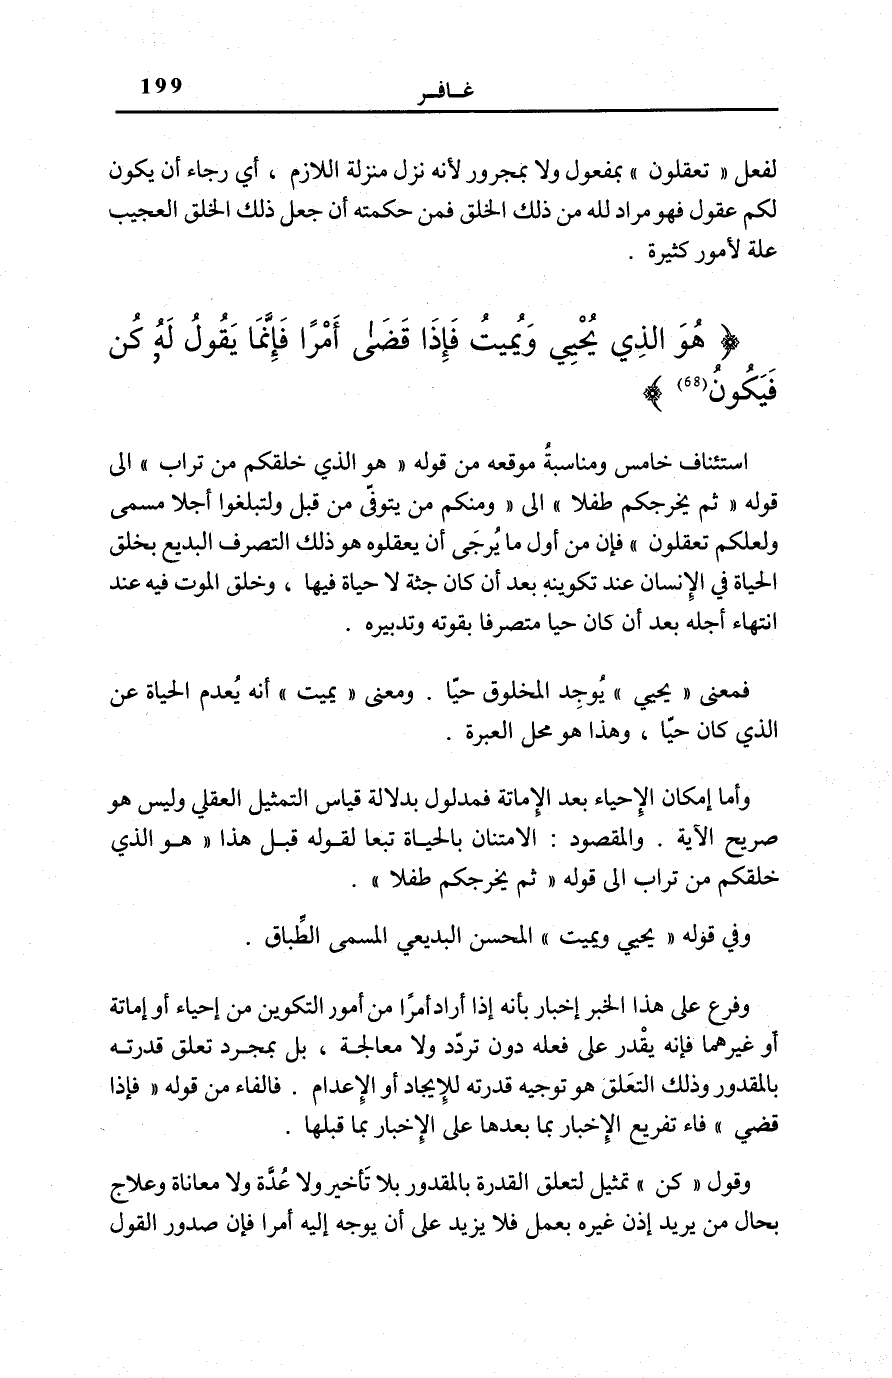 199
غـافـر
لفعل « تعقلون » بمفعول ولا بمجرور لأنه نزل منزلة اللازم ، أي رجاء أن يكون
لكم عقول فهو مراد لله من ذلك الخلق فمن حكمته أن جعل ذلك الخلق العجيب
علة لأمور كثيرة .
﴿ هُوَ الذِي يُحْيِي وَيُمِيتُ فَإِذَا قَضَىٰ أَمْرًا فَإِنَّمَا يَقُولُ لَهُ كُن
فَيَكُونُ(68) ﴾
استئناف خامس ومناسبةُ موقعه من قوله « هو الذي خلقكم من تراب » الى
قوله « ثم يخرجكم طفلا » الى « ومنكم من يتوفّى من قبل ولتبلغوا أجلا مسمى
ولعلكم تعقلون » فإن من أول ما يُرجَى أن يعقلوه هو ذلك التصرف البديع بخلق
الحياة في الإنسان عند تكوينه بعد أن كان جثة لا حياة فيها ، وخلق الموت فيه عند
انتهاء أجله بعد أن كان حيا متصرفا بقوته وتدبيره .
فمعنى « يحيي » يُوجِد المخلوق حيّا . ومعنى « يميت » أنه يُعدم الحياة عن
الذي كان حيّا ، وهذا هو محل العبرة .
وأما إمكان الإحياء بعد الإماتة فمدلول بدلالة قياس التمثيل العقلي وليس هو
صريح الآية . والمقصود : الامتنان بالحيـاة تبعا لقـوله قبـل هذا « هـو الذي
خلقكم من تراب الى قوله « ثم يخرجكم طفلا » .
وفي قوله « يحيي ويميت » المحسن البديعي المسمى الطِّباق .
وفرع على هذا الخبر إخبار بأنه إذا أراد أمرًا من أمور التكوين من إحياء أو إماتة
أو غيرهما فإنه يقْدر على فعله دون تردّد ولا معالجـة ، بل بمجـرد تعلق قدرتـه
بالمقدور وذلك التعَلق هو توجيه قدرته للإيجاد أو الإعدام . فالفاء من قوله « فإذا
قضي » فاء تفريع الإخبار بما بعدها على الإخبار بما قبلها .
وقول « كن » تمثيل لتعلق القدرة بالمقدور بلا تَأخير ولا عُدَّة ولا معاناة وعلاج
بحال من يريد إذن غيره بعمل فلا يزيد على أن يوجه إليه أمرا فإن صدور القول